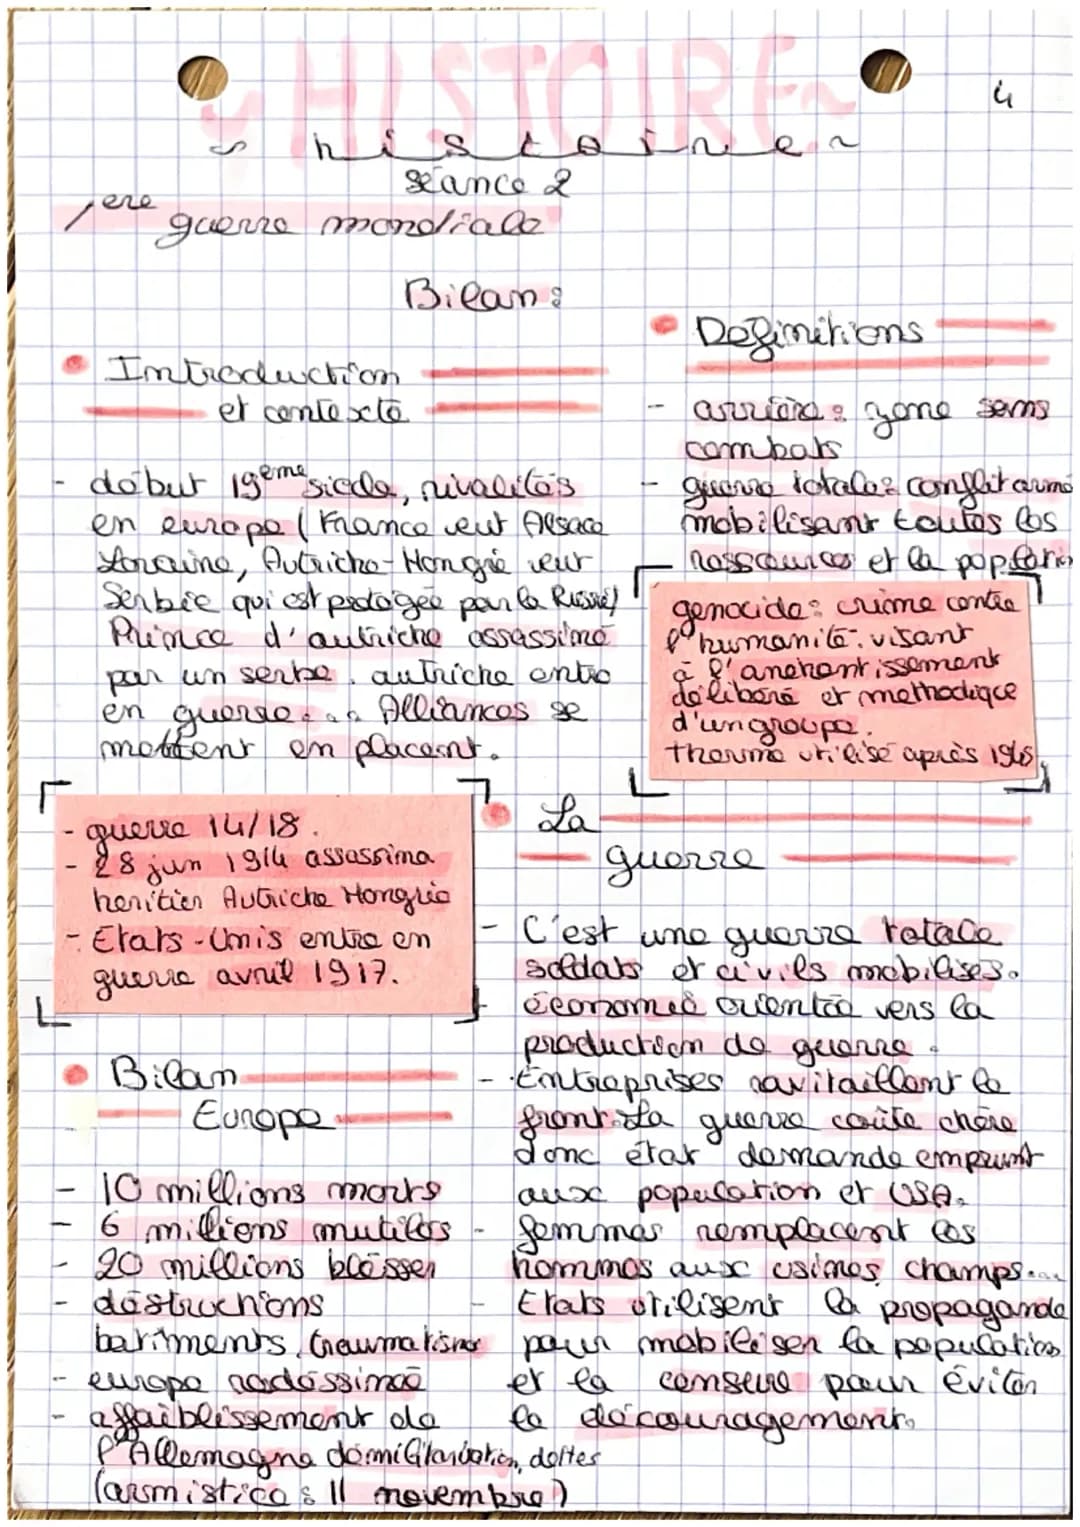 ~ HISTOIRE ~
4
~ histoire ~
séance 2
1ere guerre mondiale
Bilan :
Introduction
et contexte
- début 19ème siecle, rivalités
en europe (France veut Alsace
Loraine, Autriche-Hongrie veut
Serbie qui est protégée par la Russie)
Prince d'autriche assassiné
par un serbe. autriche entre
en guerre... Alliances se
mettent en placent.
- guerre 14/18.
- 28 jun 1914 assassina
heritier Autriche Hongrie
- Etats-Unis entre en
guerre avril 1917.
Bilan
Europe
- 10 millions morts
- 6 millions mutilés
- 20 millions blésser
- déstructions
batiments, traumatisme
- europe redéssinée
- affaiblissement de
l'Allemagne démilitarisation, dettes
(armistice : 11 novembre)
Definitions
- arrière : zone sans
combats
- guerre totale : conflit armé
mobilisant toutes les
ressources et la population
genocide : crime contre
l'humanité. visant
à l'anehantissement
délibéré et methodique
d'un groupe.
therme utilisé après 1945
La
guerre
- C'est une guerre totale
soldats et civils mobilises.
- économie orientée vers la
production de guerre.
- Entreprises ravitaillent le
front. La guerre coûte chère
donc état demande emprunt
aux population et USA.
- femmes remplacent les
hommes aux usines, champs...
- Etats utilisent la propagande
pour mobiliser la population
et la censure pour éviter
le découragement.